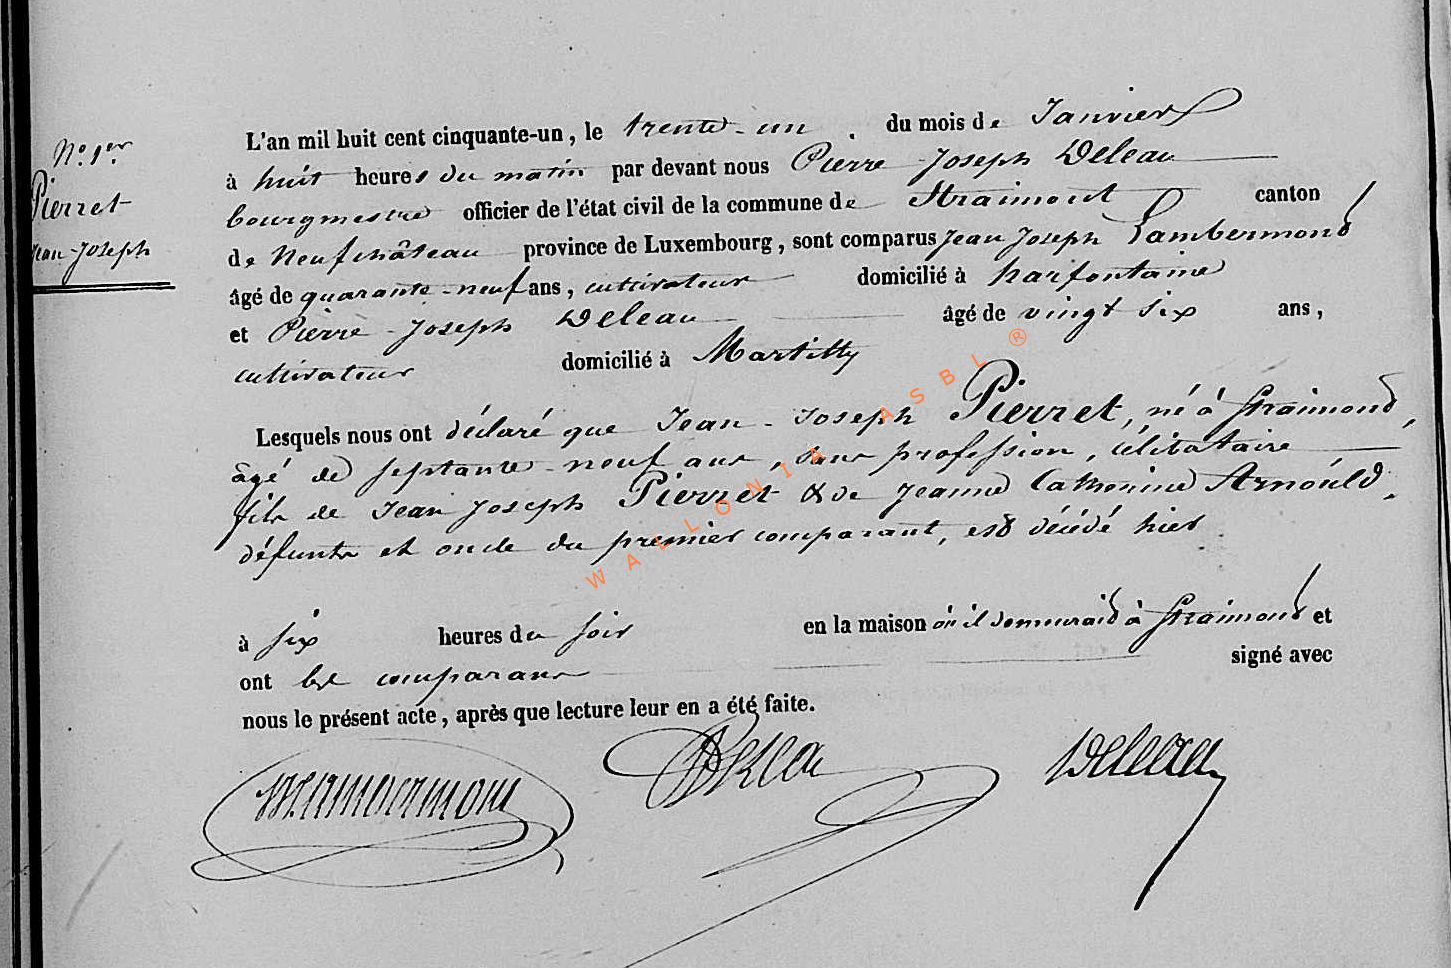 N.º 1.er
Pierret
Jean-Joseph
L'an mil huit cent cinquante-un, le trente-un . du mois de Janvier
à huit heures du matin par devant nous Pierre Joseph Deleau
bourgmestre officier de l'état civil de la commune de Straimont canton
de Neufchâteau province de Luxembourg, sont comparus Jean Joseph Lambermont
âgé de quarante-neuf ans, cultivateur domicilié à harifontaine
et Pierre-Joseph Deleau âgé de vingt six ans,
cultivateur domicilié à Martilly
Lesquels nous ont déclaré que Jean-Joseph Pierret, né à Straimont,
âgé de septante-neuf ans, sans profession, célibataire
fils de Jean Joseph Pierret & de Jeanne Catherine Arnould,
défunts et oncle du premier comparant, est décédé hier
à six heures du soir en la maison où il demeurait à Straimont et
ont les comparans signé avec
nous le présent acte, après que lecture leur en a été faite.
Deleau
WALLONIA ASBL ®